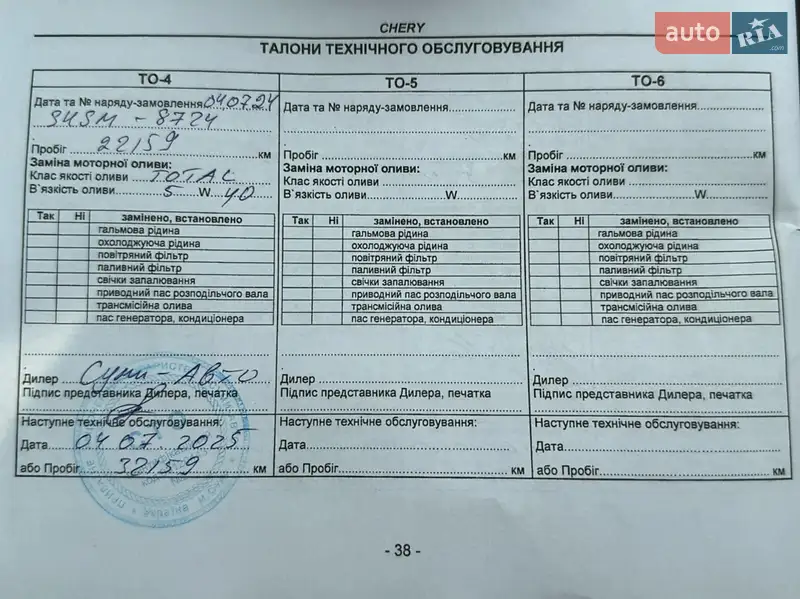 CHERY
auto RIA .com
ТАЛОНИ ТЕХНІЧНОГО ОБСЛУГОВУВАННЯ
ТО-4
Дата та № наряду-замовлення 040724
8724
Пробіг 22159 км
Заміна моторної оливи:
Клас якості оливи TOTAL
В`язкість оливи 5 W 40
Так Ні замінено, встановлено
гальмова рідина
охолоджуюча рідина
повітряний фільтр
паливний фільтр
свічки запалювання
приводний пас розподільчого вала
трансмісійна олива
пас генератора, кондиціонера
Дилер Суми-Авто
Підпис представника Дилера, печатка
Наступне технічне обслуговування:
Дата 04 07 2025
або Пробіг 32159 км
ТО-5
Дата та № наряду-замовлення
Пробіг км
Заміна моторної оливи:
Клас якості оливи
В`язкість оливи W
Так Ні замінено, встановлено
гальмова рідина
охолоджуюча рідина
повітряний фільтр
паливний фільтр
свічки запалювання
приводний пас розподільчого вала
трансмісійна олива
пас генератора, кондиціонера
Дилер
Підпис представника Дилера, печатка
Наступне технічне обслуговування:
Дата
або Пробіг км
ТО-6
Дата та № наряду-замовлення
Пробіг км
Заміна моторної оливи:
Клас якості оливи
В`язкість оливи W
Так Ні замінено, встановлено
гальмова рідина
охолоджуюча рідина
повітряний фільтр
паливний фільтр
свічки запалювання
приводний пас розподільчого вала
трансмісійна олива
пас генератора, кондиціонера
Дилер
Підпис представника Дилера, печатка
Наступне технічне обслуговування:
Дата
або Пробіг км
- 38 -